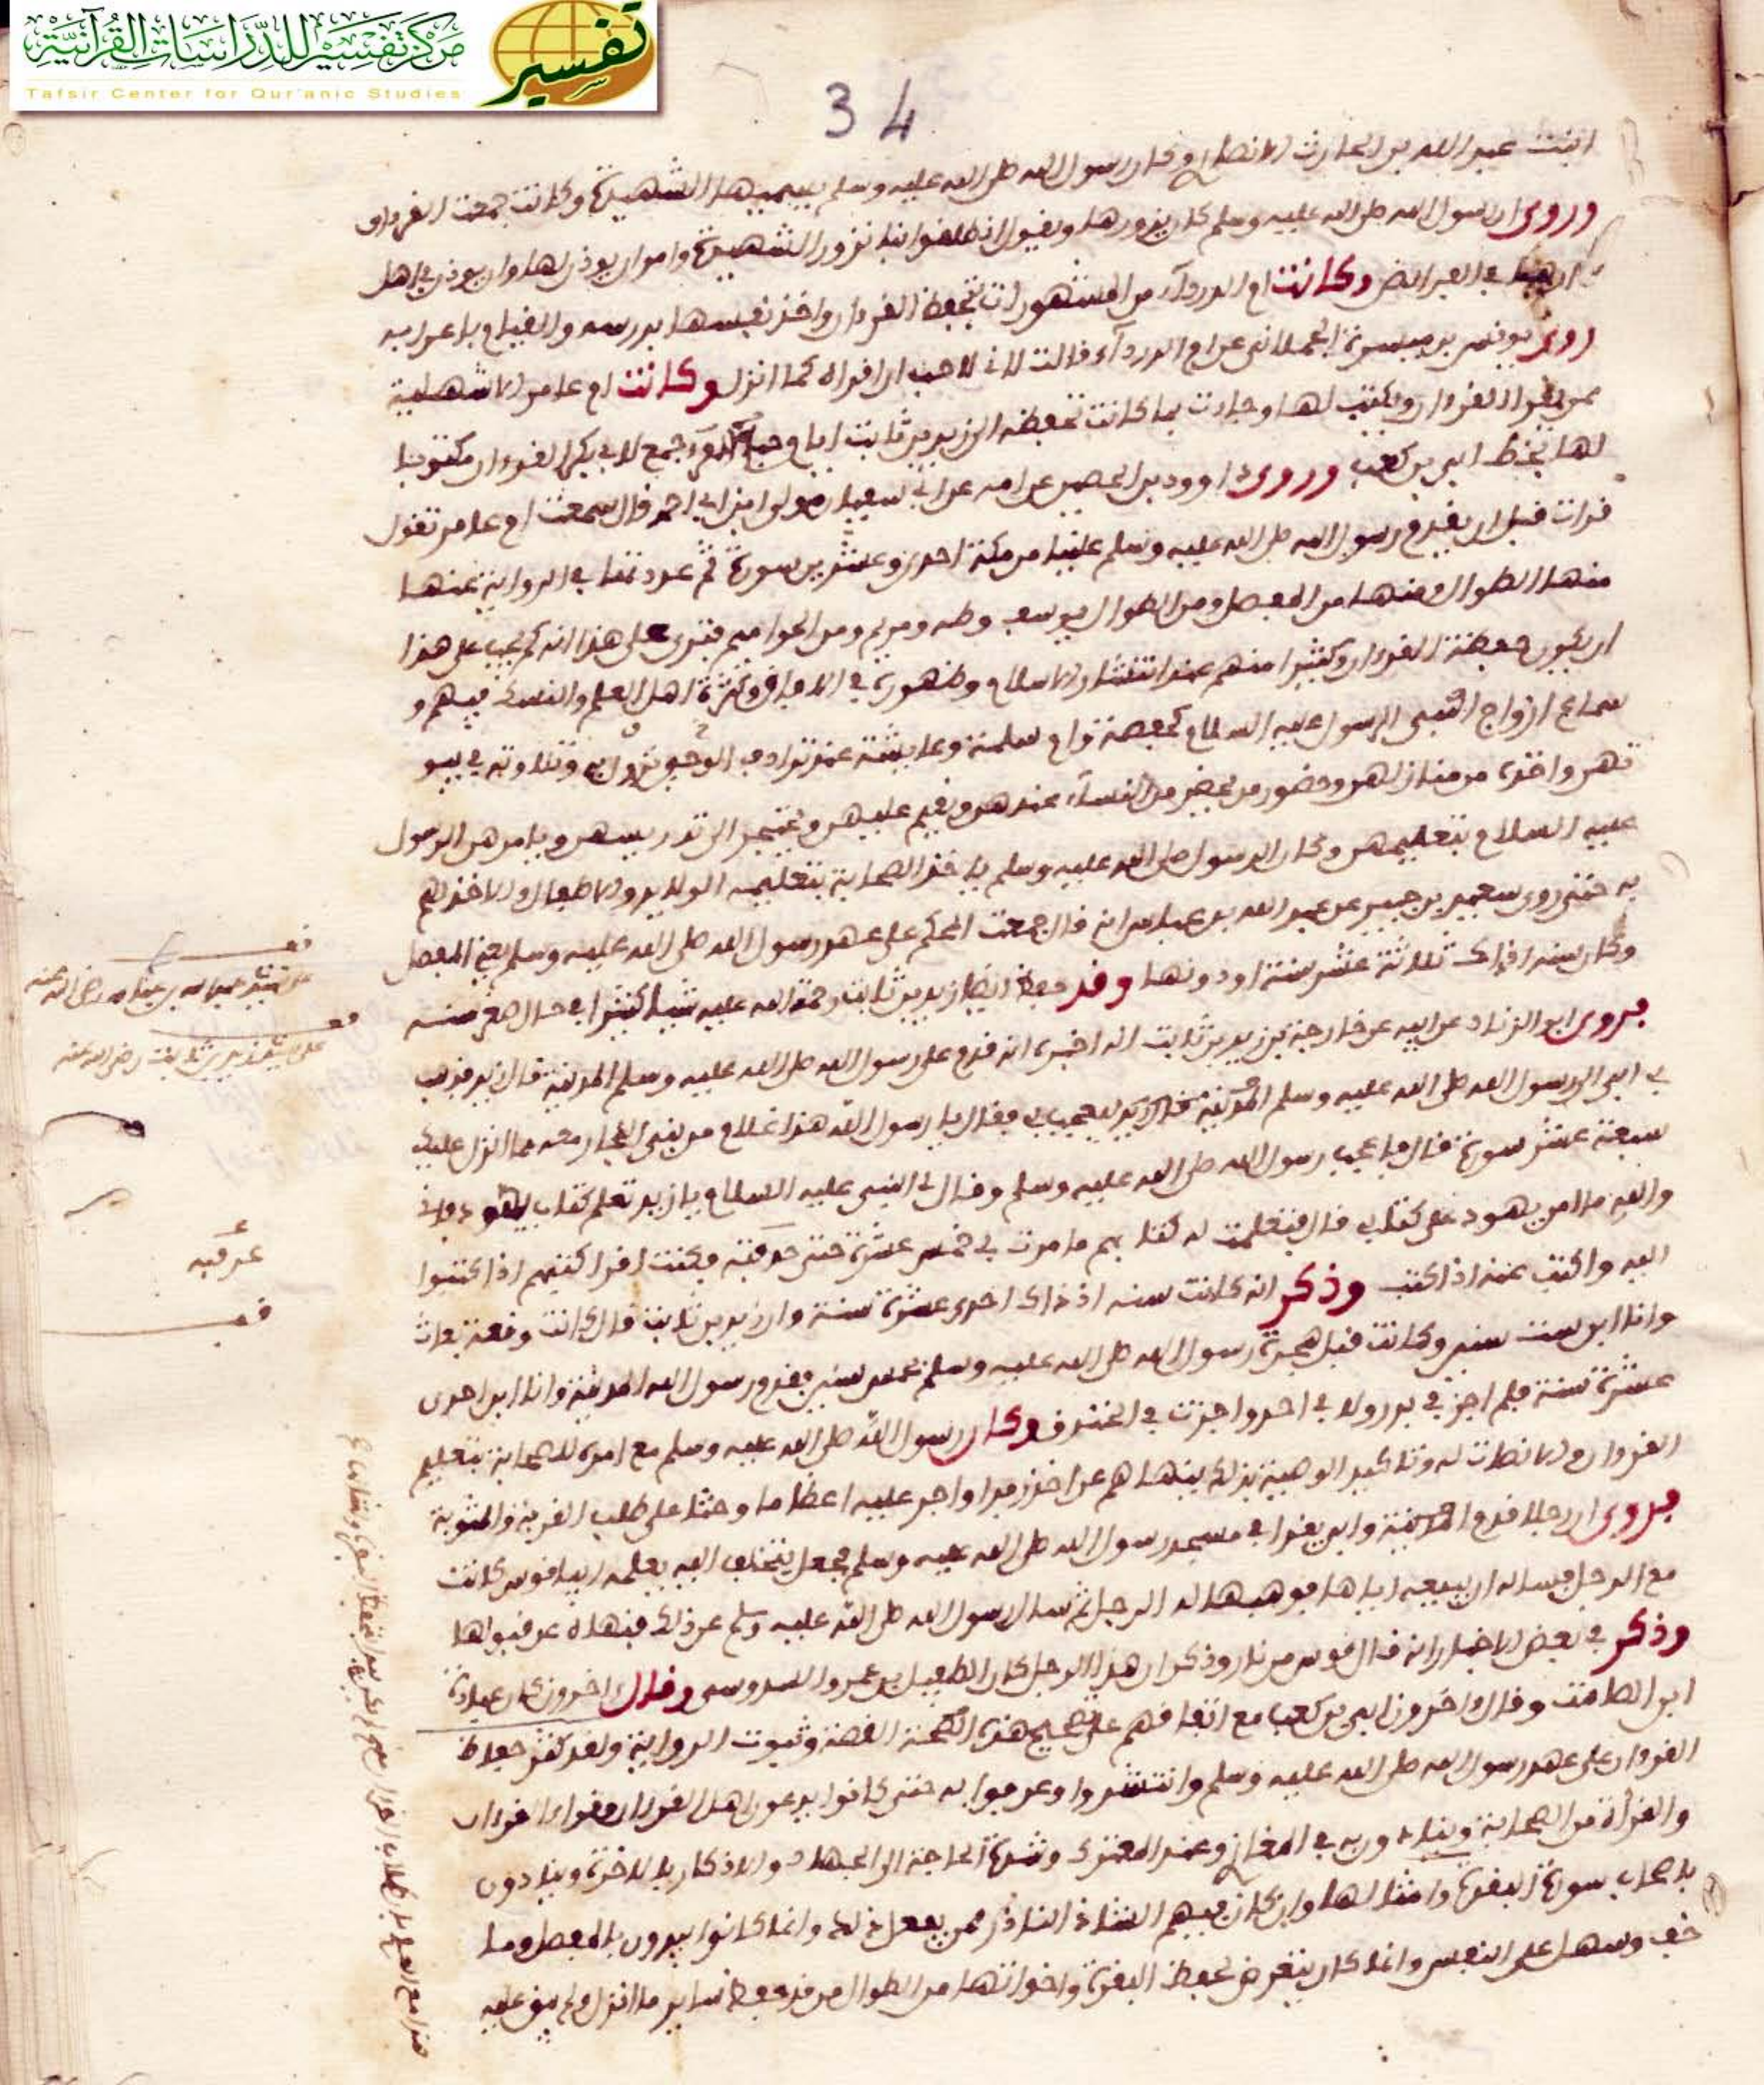 مركز تفسير للدراسات القرآنية
Tafsir Center for Qur'anic Studies
تفسير
34
ابنت عبد الله بن الحارث الانصاري وكان رسول الله صلى الله عليه وسلم يسميها الشهيدة وكانت جمعت القرءان
وروي ان رسول الله صلى الله عليه وسلم كان يزورها ويقول انطلقوا بنا نزور الشهيدة وامر ان يوذن لها وان يوذن في اهل
في الفرائض وكانت ام الدرداء من المشهورات بحفظ القرءان واخذ نفسها بدرسه والقيام باعرابه
روى يونس بن ميسرة الجبلاني عن ام الدرداء قالت اني لاحب ان اقراه كما انزل وكانت ام عامر الاشهلية
ممن يقرا القرءان ويكتب لها وجاءت بما كانت تحفظه الى زيد بن ثابت ايام جمع لابي بكر القرءان مكتوبا
لها بخط ابي بن كعب وروى داوود بن الحصين عن امه عن ابي سفيان مولى ابن ابي احمد قال سمعت ام عامر تقول
قرات قبل ان يقدم رسول الله صلى الله عليه وسلم علينا من مكة احدى وعشرين سورة ثم عددتها في الرواية عنها
منها الطوال ومنها من المفصل ومن الطوال يوسف وطه ومريم ومن الحواميم فترى على هذا انه لم يجب على هذا
ان يكون حفظة القرءان وكثيرا منهم عند انتشار الاسلام وظهوره في الافاق وكثرة اهل العلم والنسك فيهم و
سماع ازواج النبي الرسول عليه السلام كحفصة وام سلمة وعايشة عند ترادف الوحي ونزوله وتلاوته في بيو
تهن واخذه من منازلهن وحضور من يحضر من النساء عندهن ويقيم عليهن ويحتجن الى تدريسهن ويامرهن الرسول
عليه السلام بتعليمهن وكان الرسول صلى الله عليه وسلم ياخذ الصحابة بتعليمه الولايد والاطفال والاخذ لهم
به حتى روى سعيد بن جبير عن عبد الله بن عباس انه قال جمعت المحكم على عهد رسول الله صلى الله عليه وسلم يعني المفصل
وكان سنه اذ ذاك ثلاثة عشر سنة او دونها وقد حفظ ايضا زيد بن ثابت رحمة الله عليه شيئا كثيرا في حال صغر سنه
فروى ابو الزناد عن ابيه عن خارجة بن زيد بن ثابت انه اخبره انه قدم على رسول الله صلى الله عليه وسلم المدينة قال زيد فذهب
بي ابي الى رسول الله صلى الله عليه وسلم المدينة قال زيد ليعجب بي فقال يا رسول الله هذا غلام من بني النجار معه مما انزل عليك
سبعة عشر سورة قال فاعجب رسول الله صلى الله عليه وسلم وقال لي النبي عليه السلام يا زيد تعلم كتاب يهود فاني
والله ما امن يهود على كتابي قال فتعلمت له كتابهم ما مرت بي خمس عشرة حتى حذقته فكنت اقرا كتبهم اذا كتبوا
اليه واكتب عنه اذا كتب وذكر انه كانت سنه اذ ذاك احدى عشرة سنة وان زيد بن ثابت قال كانت وقعة بعاث
وانا ابن ست سنين وكانت قبل هجرة رسول الله صلى الله عليه وسلم بخمس سنين فقدم رسول الله المدينة وانا ابن احدى
عشرة سنة فلم اجز في بدر ولا في احد واجزت في الخندق وكان رسول الله صلى الله عليه وسلم مع امره للصحابة بتعليم
القرءان والانصات له وتاكيد الوصية بذلك ينهاهم عن اخذ زبد او اجر عليه اعظاما وحثا على طلب القربة والمثوبة
فروى ان رجلا قدم المدينة وابي يقرا في مسجد رسول الله صلى الله عليه وسلم فجعل يختلف اليه يعلمه فراى قوس كانت
مع الرجل فساله ان يبيعه اياها فوهبها له الرجل ثم سال رسول الله صلى الله عليه وسلم عن ذلك فنهاه عن قبولها
وذكر في بعض الاخبار انه قال قوس من نار وذكر ان هذا الرجل كان الطفيل بن عمرو الدوسي وقال اخرون كان عبادة
ابن الصامت وقال اخرون ابي بن كعب مع اتفاقهم على تصحيح هذه القصة وثبوت الرواية ولقد كثر حفاظ
القرءان على عهد رسول الله صلى الله عليه وسلم وانتشروا وعرفوا به حتى كانوا يدعون اهل القرءان وقراء القرءان
والقرأة من الصحابة وينادون به في المغازي وعند المعترك وشدة الحاجة الى الجهاد والاذكار بالاخرة وينادون
باصحاب سورة البقرة وامثالها وان كان فيهم الشاذ النادر ممن يفعل ذلك وانما كانوا يبدون بالمفصل وما
خف وسهل على النفس وانما كان يتعرض لحفظ البقرة واخواتها من الطوال من قد حفظ ساير ما انزل ولم يبق عليه
قف
على حفظ عبد الله بن عباس رضي الله عنه
قف
على حفظ زيد بن ثابت رضي الله عنه
قف